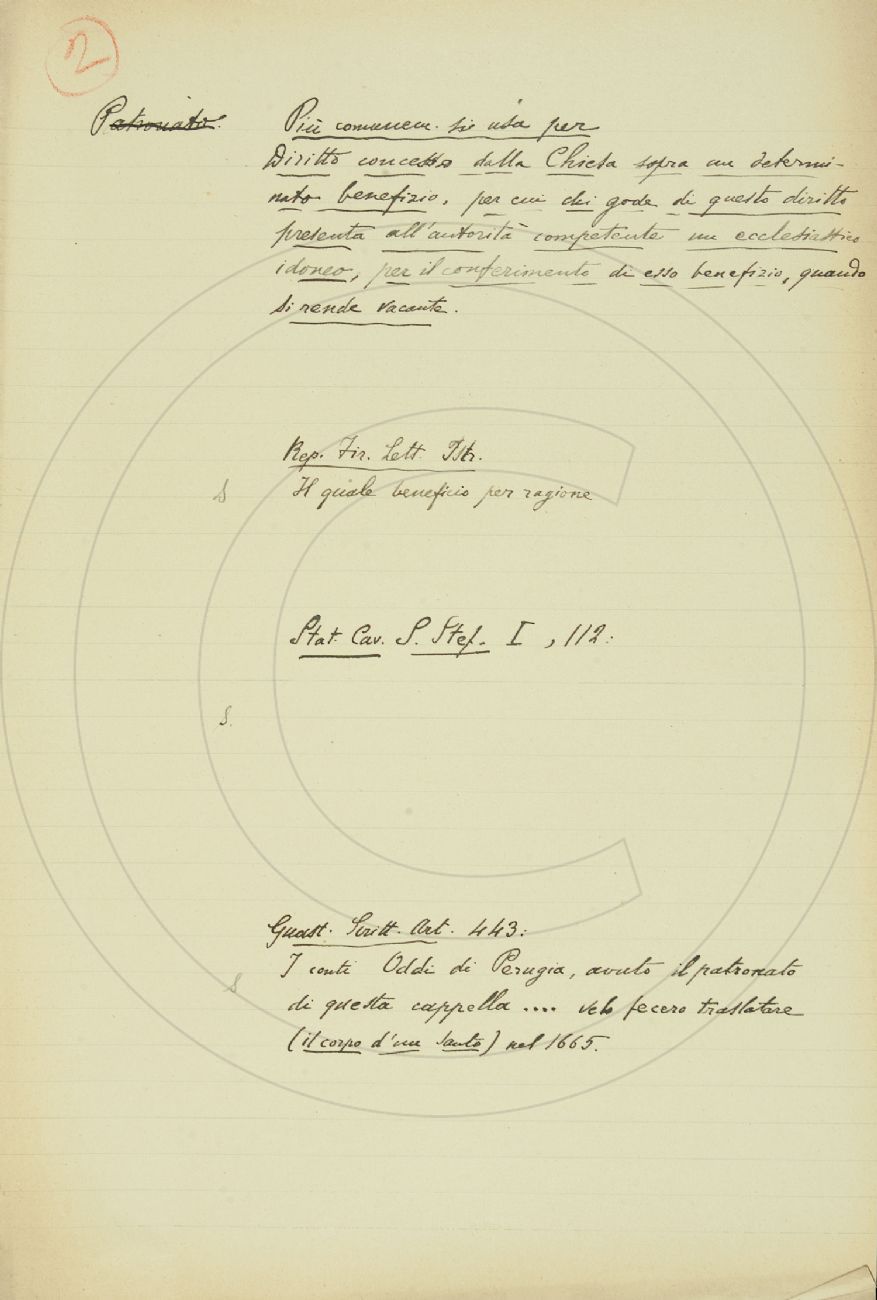 2
Patronato.
Più comunem. si usa per
Diritto concesso dalla Chiesa sopra un determi-
nato benefizio, per cui chi gode di questo diritto
presenta all'autorità competente un ecclesiastico
idoneo, per il conferimento di esso benefizio, quando
si rende vacante.
Rep. Fir. Lett. Istr.
S Il quale beneficio per ragione
Stat. Cav. S. Stef. I, 112:
S.
Guast. Scritt. Art. 443:
I conti Oddi di Perugia, avuto il patronato
S di questa cappella .... velo fecero traslatare
(il corpo d'un Santo) nel 1665.